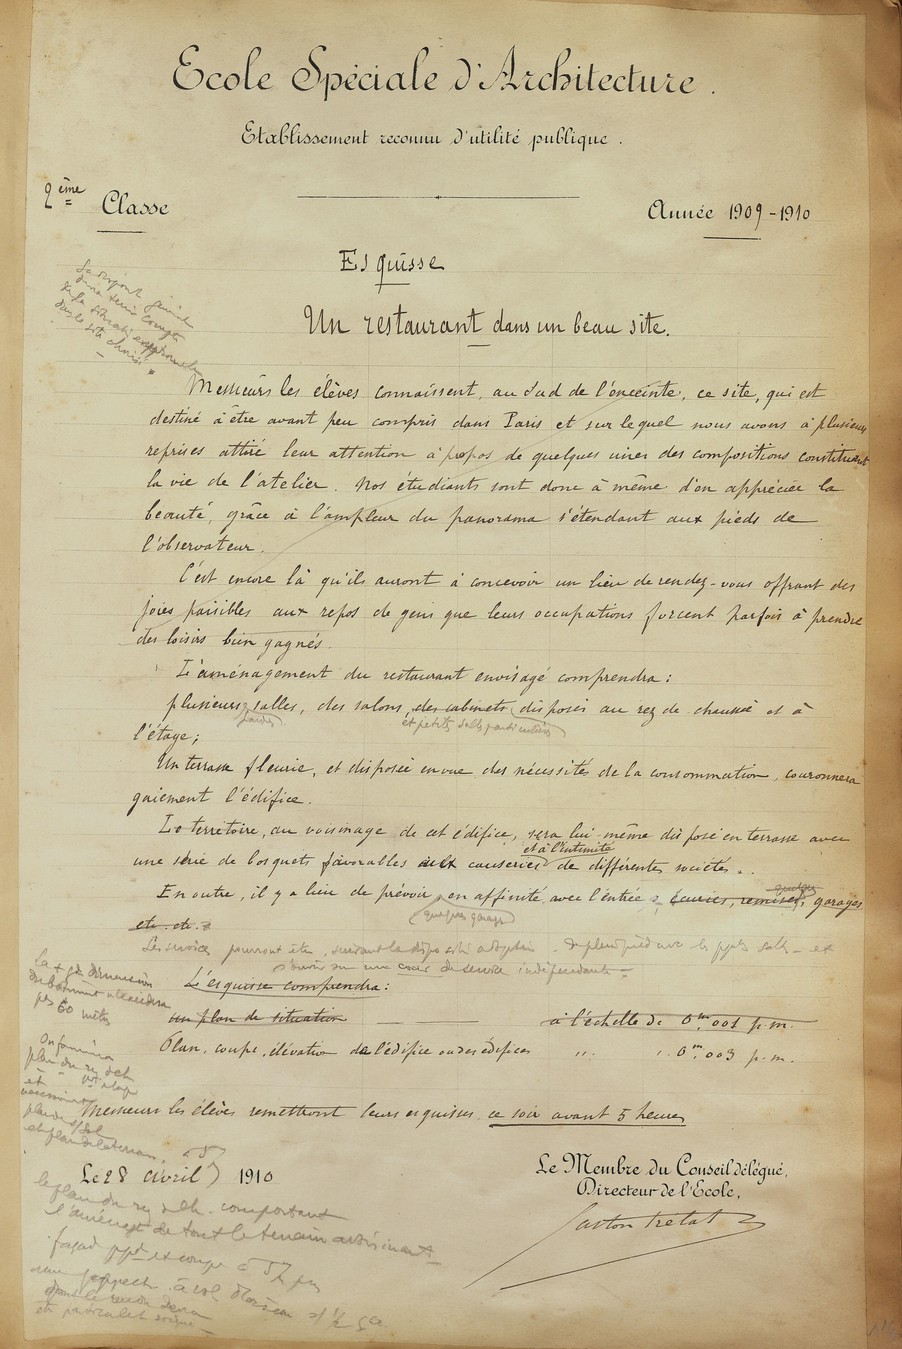 Ecole Spéciale d'Architecture.
Etablissement reconnu d'utilité publique.
2ème Classe
Année 1909-1910
Esquisse
Un restaurant dans un beau site.
Messieurs les élèves connaissent, au Sud de l'enceinte, ce site, qui est
destiné à être avant peu compris dans Paris et sur lequel nous avons à plusieurs
reprises attiré leur attention à propos de quelques unes des compositions constituant
la vie de l'atelier. Nos étudiants sont donc à même d'en apprécier la
beauté, grâce à l'ampleur du panorama s'étendant aux pieds de
l'observateur.
C'est encore là qu'ils auront à concevoir un lieu de rendez-vous offrant des
joies paisibles aux repos de gens que leurs occupations forcent parfois à prendre
des loisirs bien gagnés.
L'aménagement du restaurant envisagé comprendra:
plusieurs salles, des salons, des cabinets disposés au rez de chaussée et à
grandes
et petites salles particulières
l'étage;
Un terrasse fleurie, et disposée en vue des nécessités de la consommation, couronnera
gaiement l'édifice.
Le territoire, au voisinage de cet édifice, sera lui-même disposé en terrasse avec
et à l'intimité
une série de bosquets favorables aux causeries de différentes sociétés.
En outre, il y a lieu de prévoir, en affinité avec l'entrée, écuries, remises, garages
quelques
etc. etc.
quelques garages
Les services pourront être, suivant la disposition adoptée, de plein pied avec les salles et
une cour de service indépendante
L'esquisse comprendra:
un plan de situation à l'échelle de 0m,001 p.m.
Plan, coupe, élévation de l'édifice ou des édifices " " 0m,003 p.m.
la dimension
du bâtiment n'excédera
pas 60 mètres
On fournira
plan du rez de ch
et
Messieurs les élèves remettront leurs esquisses, ce soir avant 5 heures
Le 28 avril 1910
Le Membre du Conseil délégué,
Directeur de l'Ecole,
Gaston Trélat
le plan du rez de ch. comportant
l'aménagt de tout le terrain avoisinant
façade ppale et coupe
à vol d'oiseau